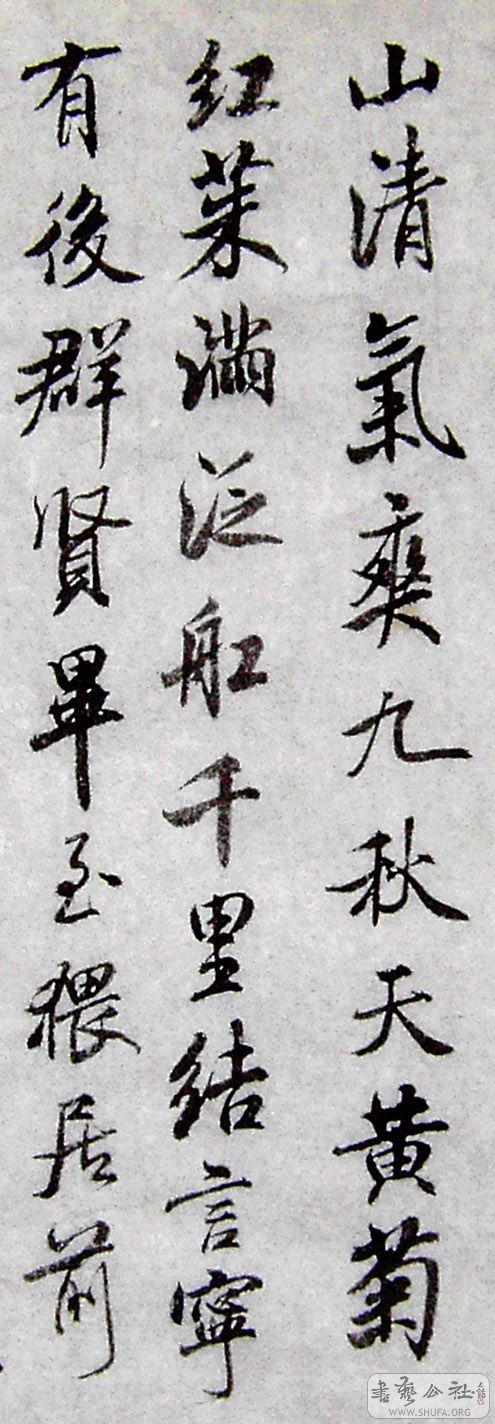 山清氣爽九秋天黄菊
红茱滿泛船千里結言寧
有後群賢畢至猥居前
書藝公社
WWW.SHUFA.ORG